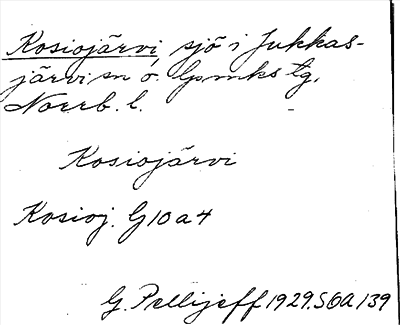 Kosiojärvi, sjö i Jukkas-
järvi sn o. Lpmks tg,
Norrb. l.
Kosiojärvi
Kosioj. G10a4
G. Pellijeff 1929. S6a 139